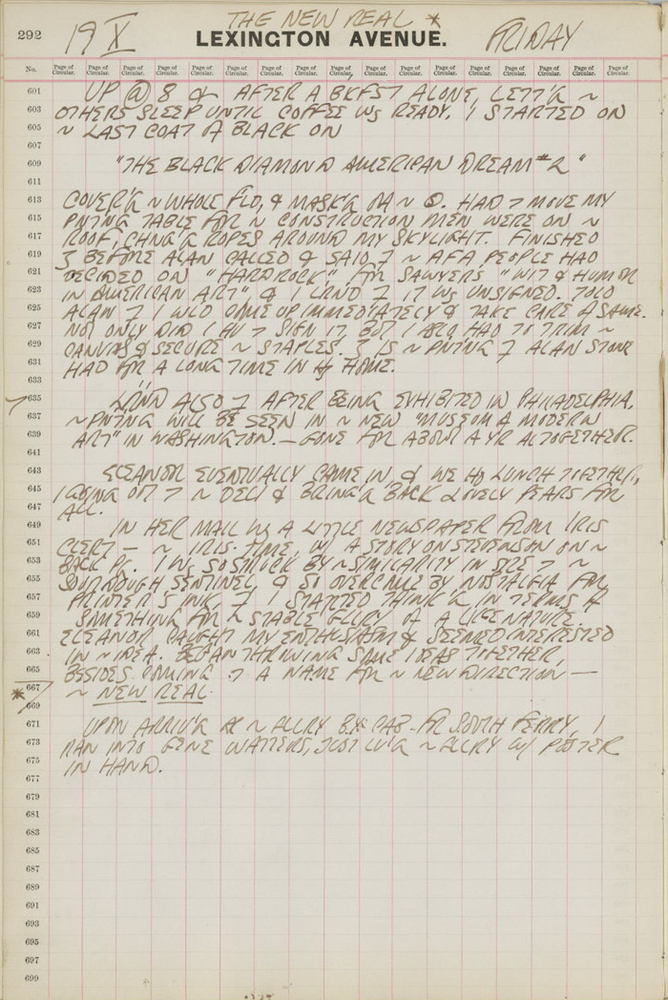 THE NEW REAL *
292 19 X LEXINGTON AVENUE. FRIDAY
No. Page of Circular. Page of Circular. Page of Circular. Page of Circular. Page of Circular. Page of Circular. Page of Circular. Page of Circular. Page of Circular. Page of Circular. Page of Circular. Page of Circular. Page of Circular. Page of Circular. Page of Circular. Page of Circular. Page of Circular.
601 UP @ 8 & AFTER A BKFST ALONE, LETT'G ~
603 OTHERS SLEEP UNTIL COFFEE WS READY. I STARTED ON
605 ~ LAST COAT OF BLACK ON
607
609 "THE BLACK DIAMOND AMERICAN DREAM #2"
611
613 COVER'G ~ WHOLE FLD, & MASK'G ~ HAD MOVE MY
615 PNTNG TABLE FOR ~ CONSTRUCTION MEN WERE ON ~
617 ROOF, CHNG'G ROPES AROUND MY SKYLIGHT. FINISHED
619 BEFORE ALAN CALLED & SAID ~ AFA PEOPLE HAD
621 DECIDED ON "HARDROCK", FOR SAWYERS "WIT & HUMOR
623 IN AMERICAN ART" & I LRND IT WS UNSIGNED. TOLD
625 ALAN I WLD COME UP IMMEDIATELY & TAKE CARE OF SAME.
627 NOT ONLY DID I HAV SIGN IT, BUT I ALSO HAD TO TRIM ~
629 CANVAS & SECURE ~ STAPLES. IS ~ PNTNG ALAN STONE
631 HAD FOR A LONG TIME IN HOME.
633
635 LRND ALSO AFTER BEING EXHIBITED IN PHILADELPHIA,
637 ~ PNTNG WILL BE SEEN IN ~ NEW "MUSEUM OF MODERN
639 ART" IN WASHINGTON. — GONE FOR ABOUT A YR ALTOGETHER.
641
643 ELEANOR EVENTUALLY CAME IN, & WE HD LUNCH TOGETHER,
645 I GOING OUT ~ DELI & BRING'G BACK LOVELY PEARS FOR
647 ALL.
649 IN HER MAIL WS A LITTLE NEWSPAPER FROM IRIS
651 CLERT — ~ IRIS·TIME, W/ A STORY ON STEVENSON ON ~
653 BACK PG. I WS SO STRUCK BY ~ SIMILARITY IN SIZE ~
655 SOURDOUGH SENTINEL, & SO OVERCOME BY NOSTALGIA FOR
657 PRINTER'S INK, I STARTED THINK'G IN TERMS OF
659 SOMETHING FOR ~ STABLE GLLRY OF A LIKE NATURE.
661 ELEANOR CAUGHT MY ENTHUSIASM & SEEMED INTERESTED
663 IN ~ IDEA. BEGAN THROWING SOME IDEAS TOGETHER,
665 BESIDES COMING A NAME FOR ~ NEW DIRECTION —
* 667 ~ NEW REAL.
669
671 UPON ARRIV'G AT ~ ALLRY BY CAB FR SOUTH FERRY, I
673 RAN INTO GENE WATTERS, JUST LV'G ~ ALLRY W/ POSTER
675 IN HAND.
677
679
681
683
685
687
689
691
693
695
697
699